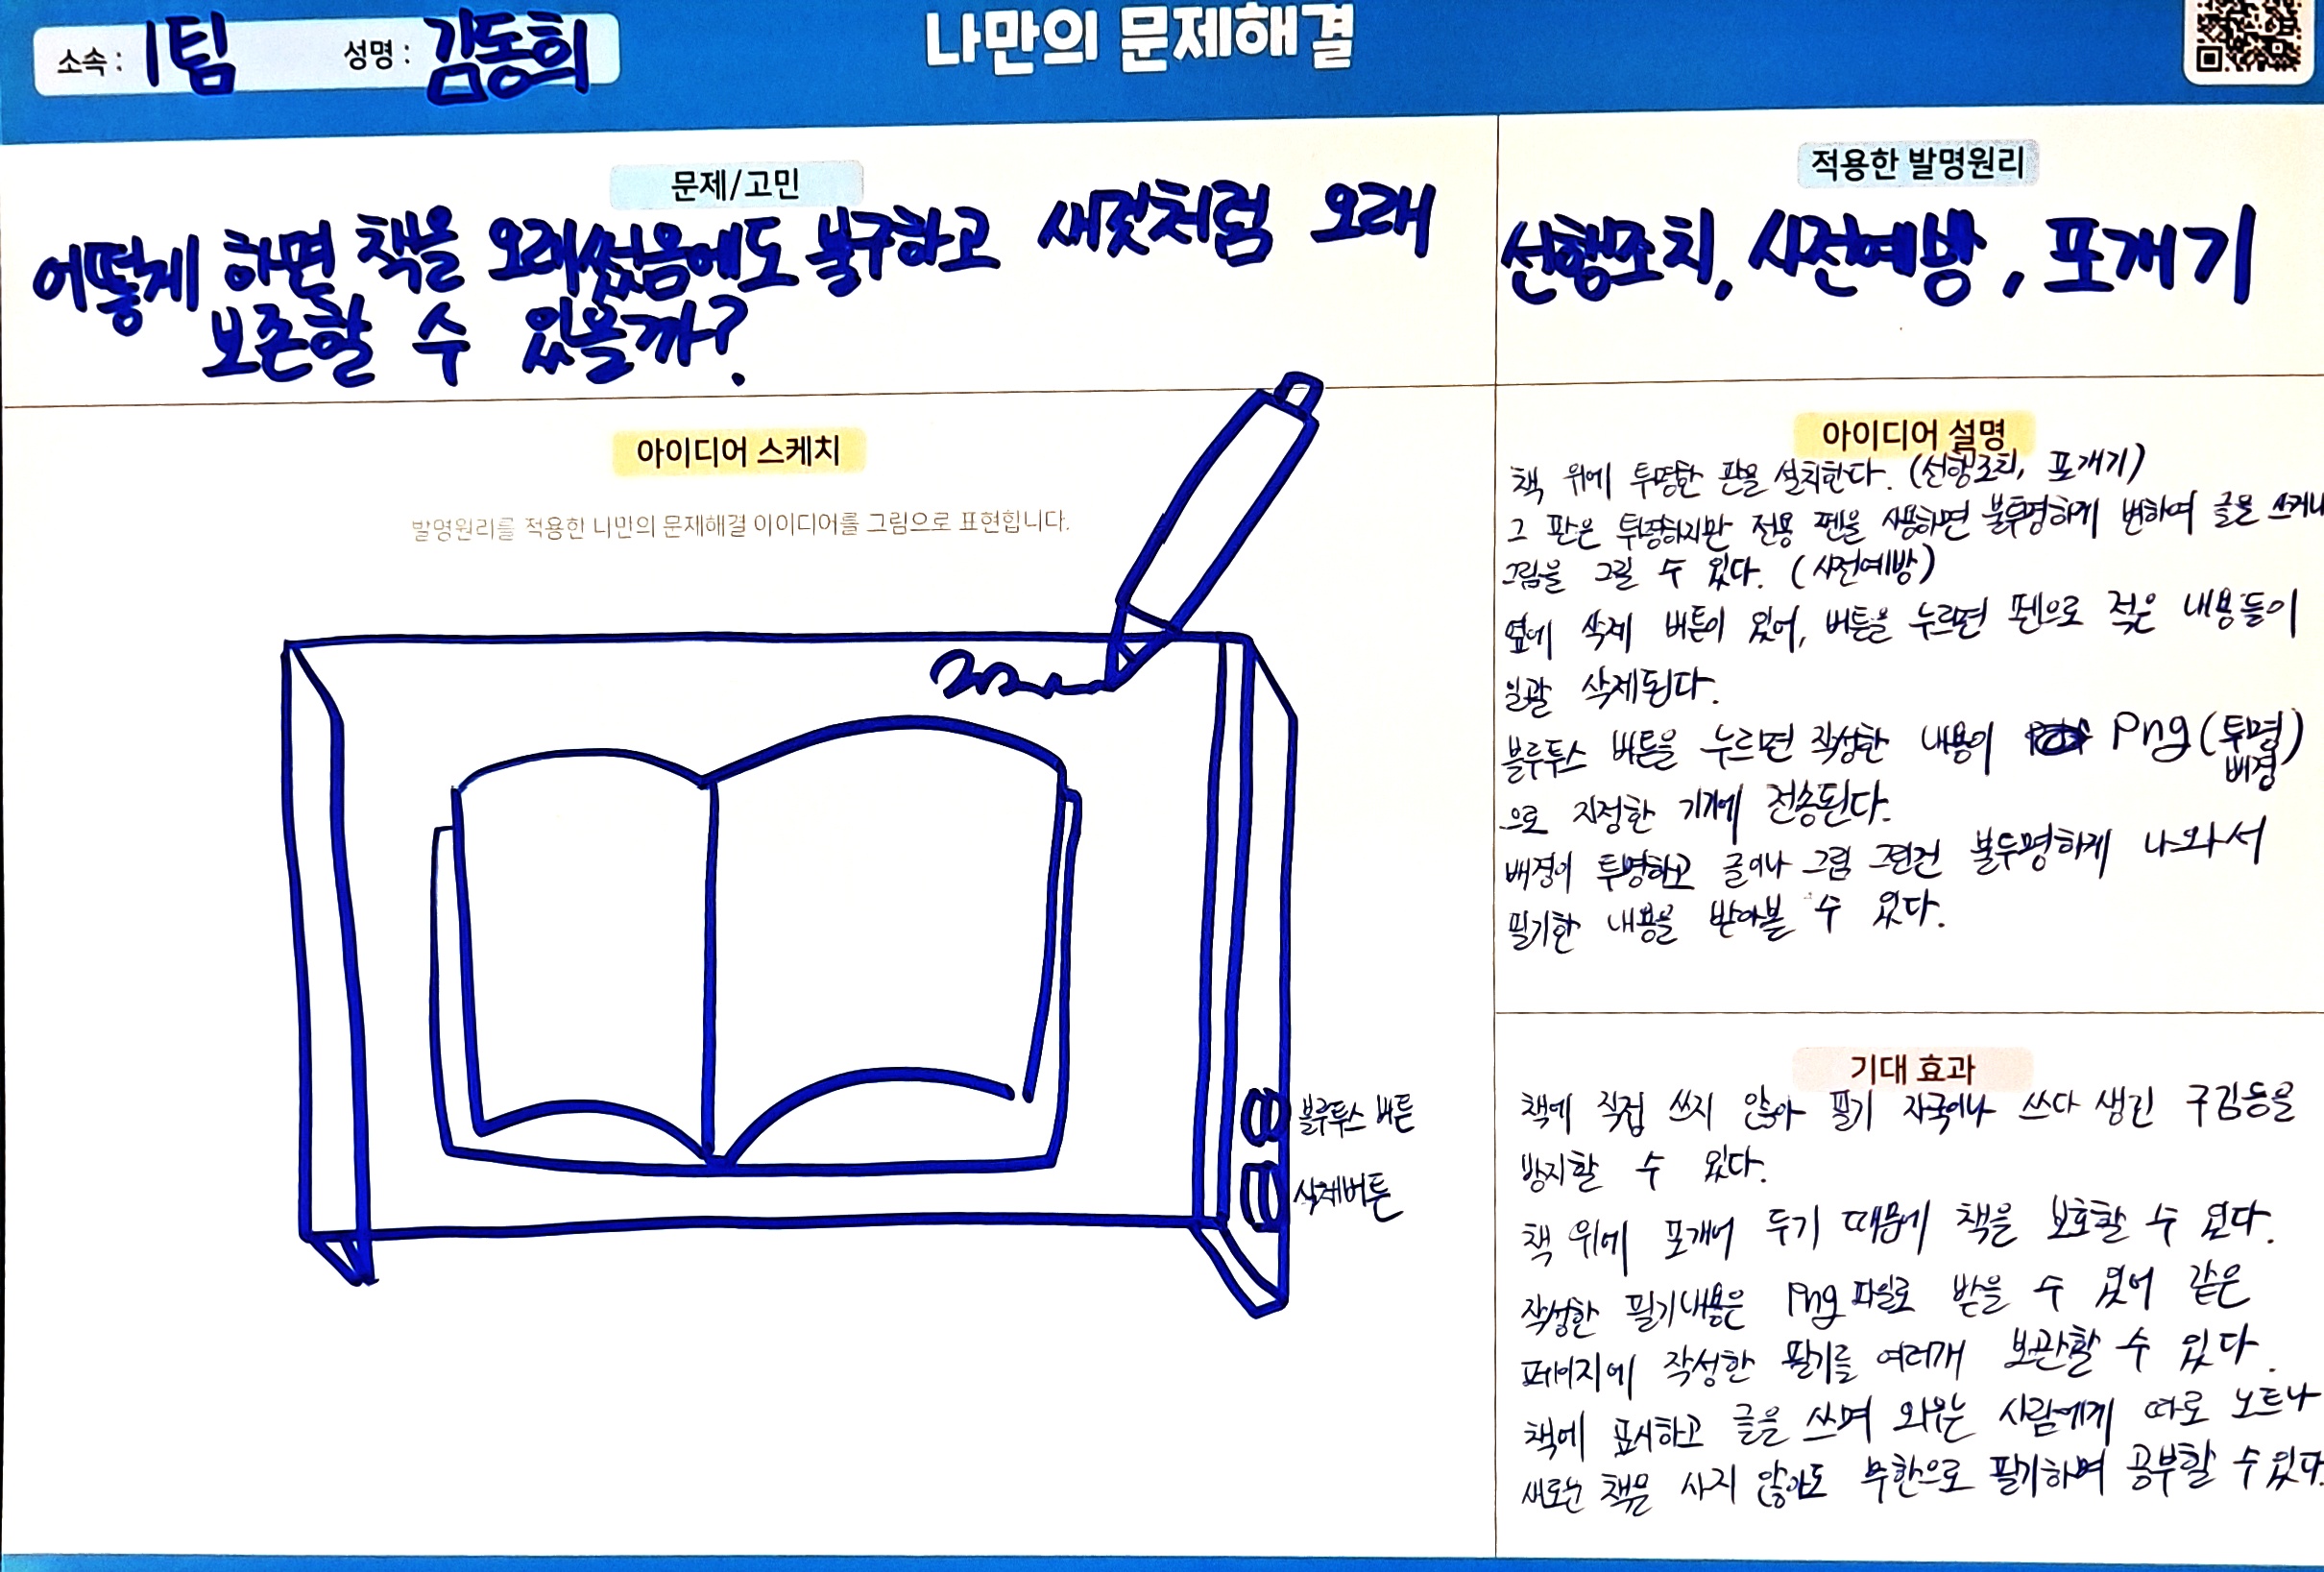 소속 : 1팀 성명 : 김동희
나만의 문제해결
문제/고민
어떻게 하면 책을 오래썼음에도 불구하고 새것처럼 오래
보존할 수 있을까?
적용한 발명원리
선행조치, 사전예방, 포개기
아이디어 스케치
발명원리를 적용한 나만의 문제해결 아이디어를 그림으로 표현합니다.
블루투스 버튼
삭제버튼
아이디어 설명
책 위에 투명한 판을 설치한다. (선행조치, 포개기)
그 판은 투명하지만 전용 펜을 사용하면 불투명하게 변하여 글을 쓰거나
그림을 그릴 수 있다. (사전예방)
옆에 삭제 버튼이 있어, 버튼을 누르면 펜으로 적은 내용들이
일괄 삭제된다.
블루투스 버튼을 누르면 작성한 내용이 Png (투명
배경)
으로 지정한 기기에 전송된다.
배경이 투명하고 글이나 그림 그런건 불투명하게 나와서
필기한 내용을 받아볼 수 있다.
기대 효과
책에 직접 쓰지 않아 필기 자국이나 쓰다 생긴 구김등을
방지할 수 있다.
책 위에 포개어 두기 때문에 책을 보호할 수 있다.
작성한 필기내용은 Png 파일로 받을 수 있어 같은
페이지에 작성한 필기를 여러개 보관할 수 있다.
책에 표시하고 글을 쓰며 외우는 사람에게 따로 노트나
새로운 책을 사지 않아도 무한으로 필기하며 공부할 수 있다.